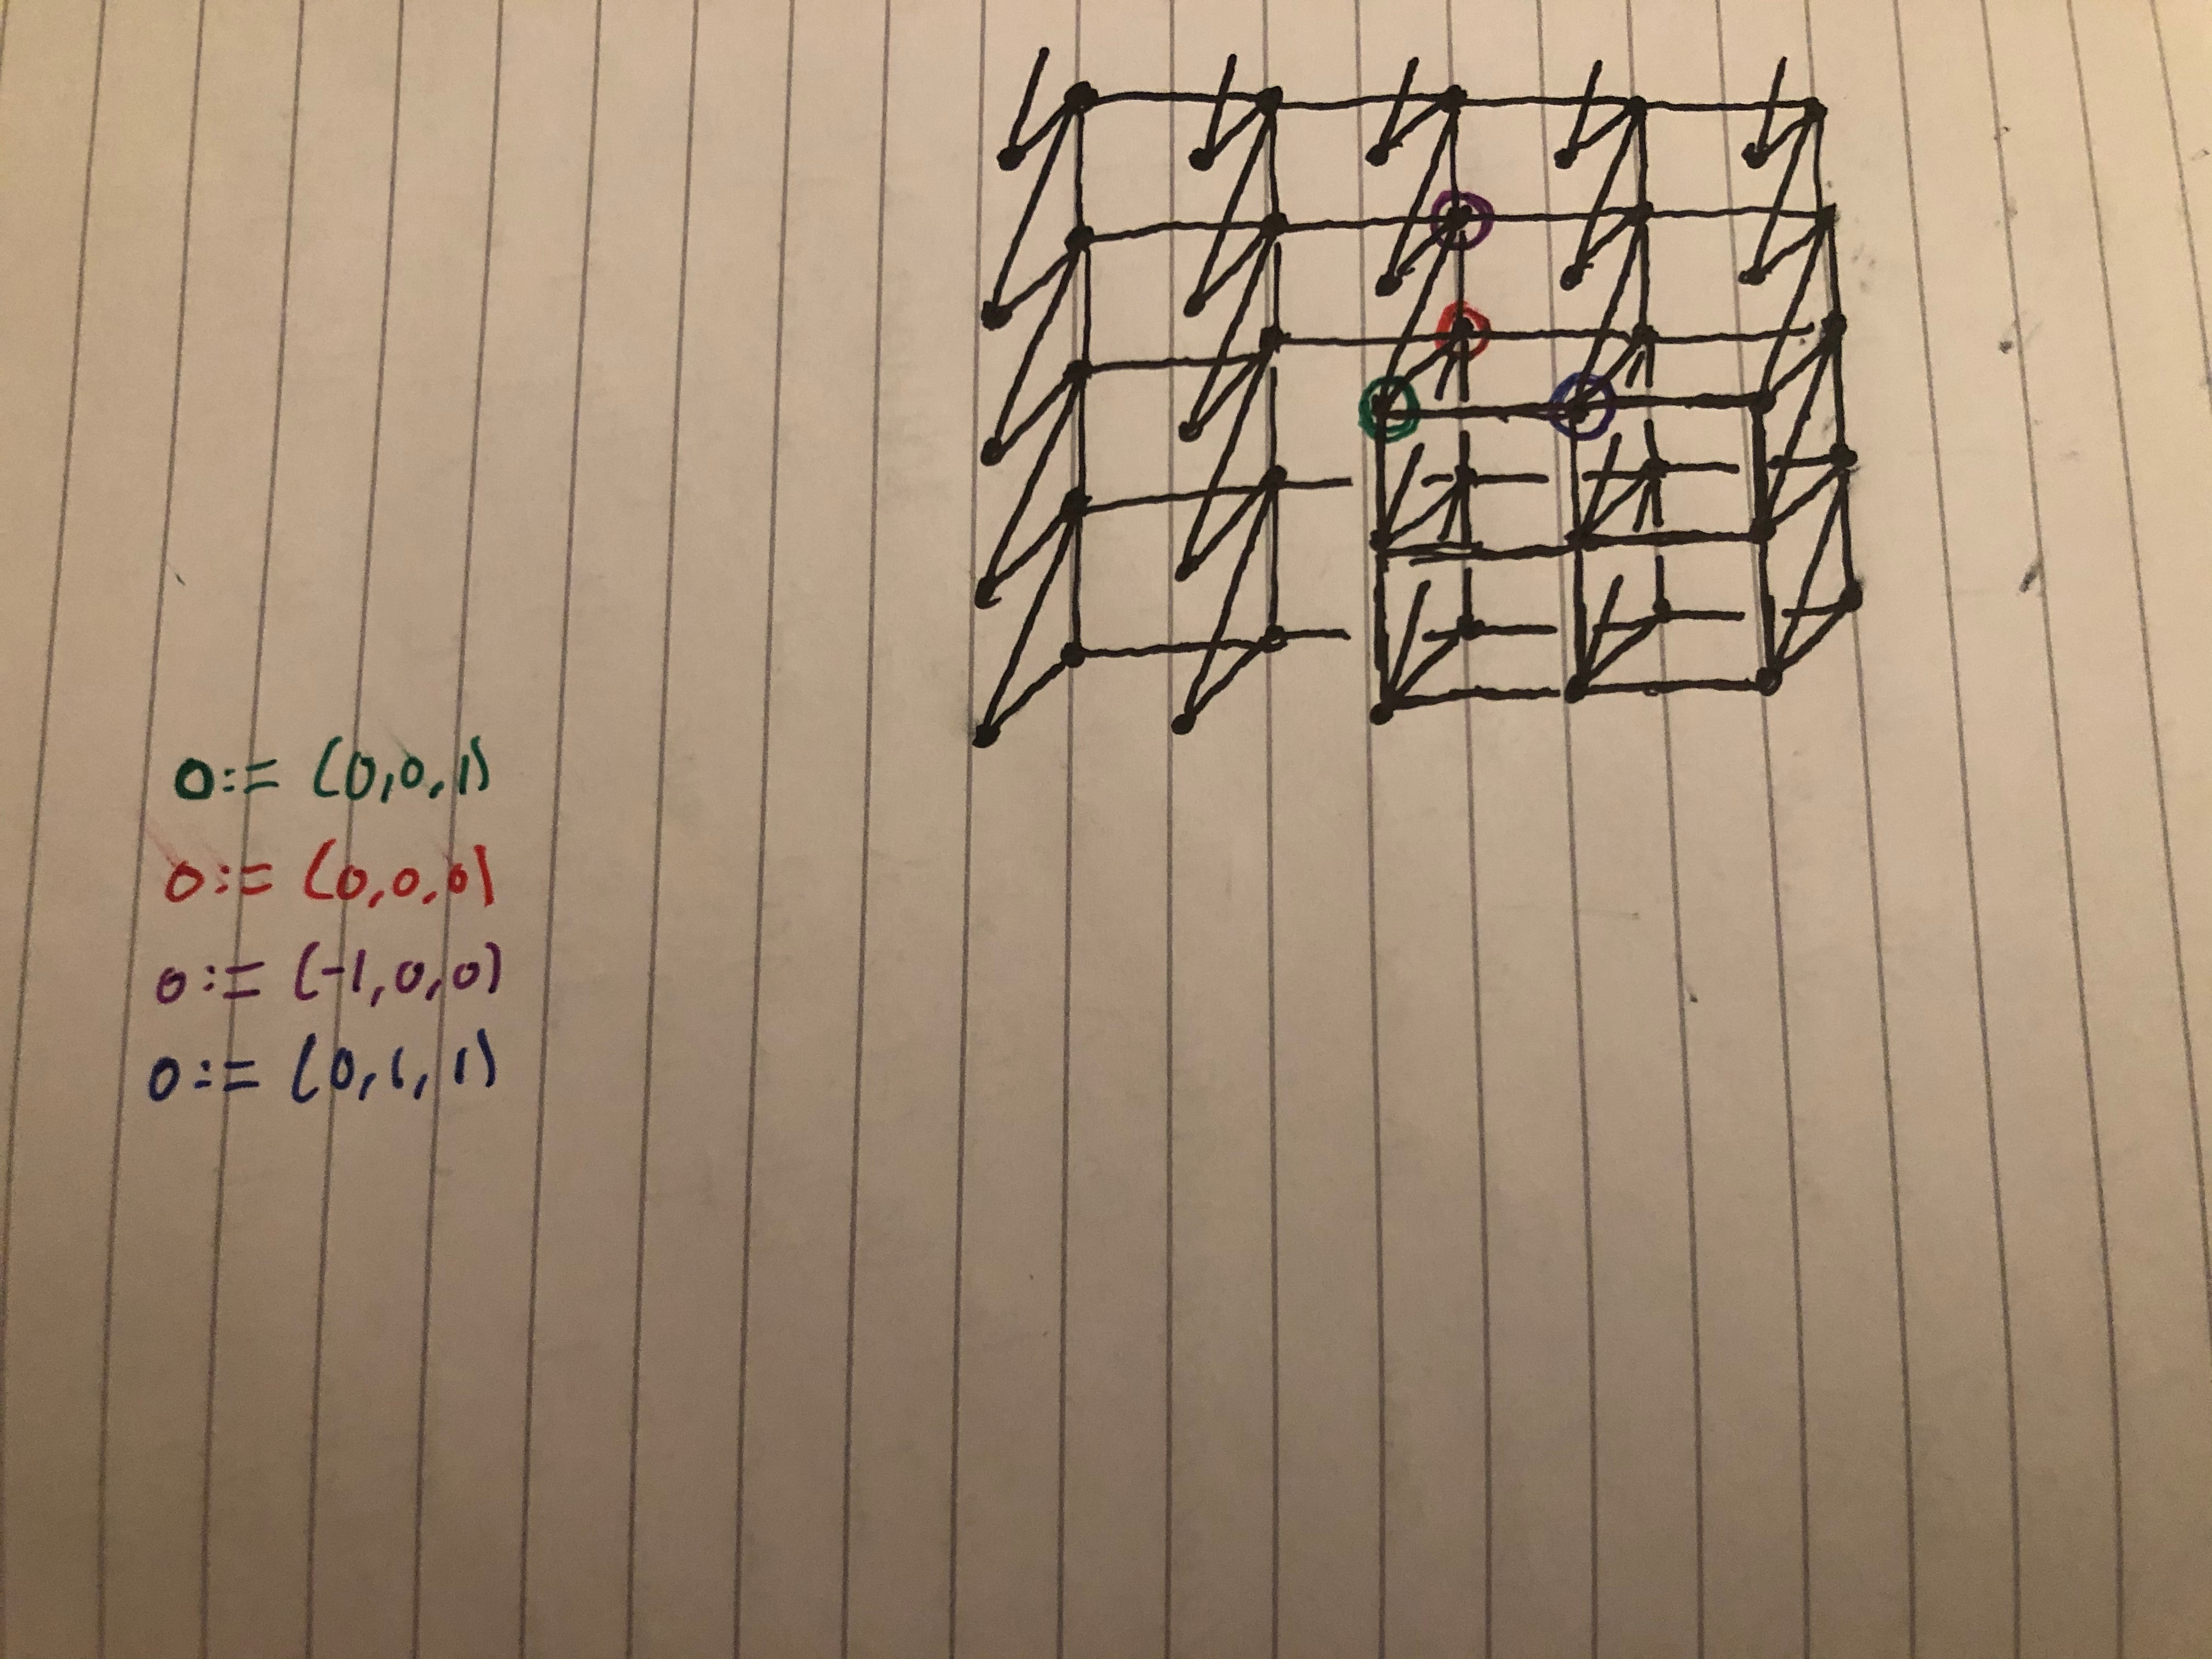 o:= (0,0,1)
o:= (0,0,0)
o:= (-1,0,0)
o:= (0,1,1)